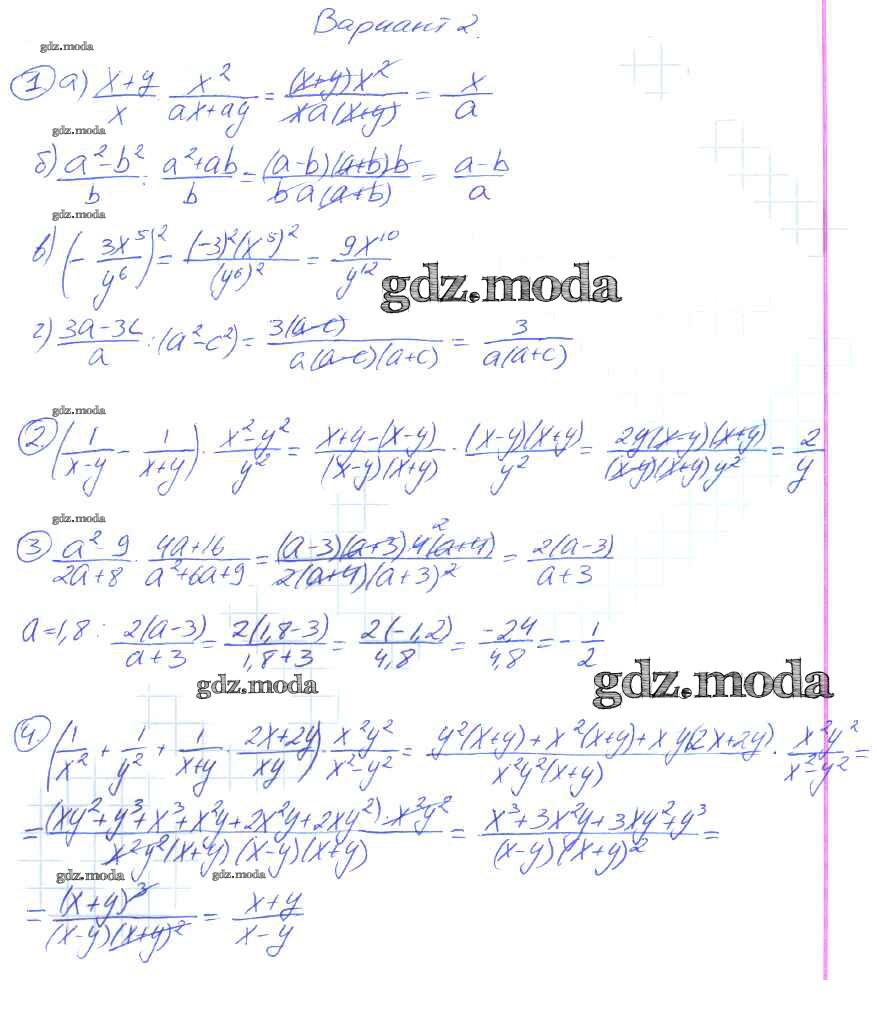 Вариант 2.
gdz.moda
① а) (x+y)/x · x²/(ax+ay) = ((x+y)x²)/(xa(x+y)) = x/a
gdz.moda
б) (a²-b²)/b : (a²+ab)/b = ((a-b)(a+b)b)/(ba(a+b)) = (a-b)/a
gdz.moda
в) (- 3x⁵/y⁶)² = ((-3)²(x⁵)²)/(y⁶)² = 9x¹⁰/y¹²
gdz.moda
г) (3a-3c)/a : (a²-c²) = 3(a-c)/(a(a-c)(a+c)) = 3/(a(a+c))
gdz.moda
② (1/(x-y) - 1/(x+y)) · (x²-y²)/y² = (x+y-(x-y))/((x-y)(x+y)) · ((x-y)(x+y))/y² = (2y(x-y)(x+y))/((x-y)(x+y)y²) = 2/y
gdz.moda
③ (a²-9)/(2a+8) · (4a+16)/(a²+6a+9) = ((a-3)(a+3)4(a+4))/(2(a+4)(a+3)²) = 2(a-3)/(a+3)
a=1,8 : 2(a-3)/(a+3) = 2(1,8-3)/(1,8+3) = 2(-1,2)/4,8 = -24/4,8 = - 1/2
gdz.moda
gdz.moda
④ (1/x² + 1/y² + 1/(x+y) · (2x+2y)/xy) · x²y²/(x²-y²) = (y²(x+y)+x²(x+y)+xy(2x+2y))/(x²y²(x+y)) · x²y²/(x²-y²) =
= ((xy²+y³+x³+x²y+2x²y+2xy²)·x²y²)/(x²y²(x+y)(x-y)(x+y)) = (x³+3x²y+3xy²+y³)/((x-y)(x+y)²) =
gdz.moda gdz.moda
= (x+y)³/((x-y)(x+y)²) = (x+y)/(x-y)